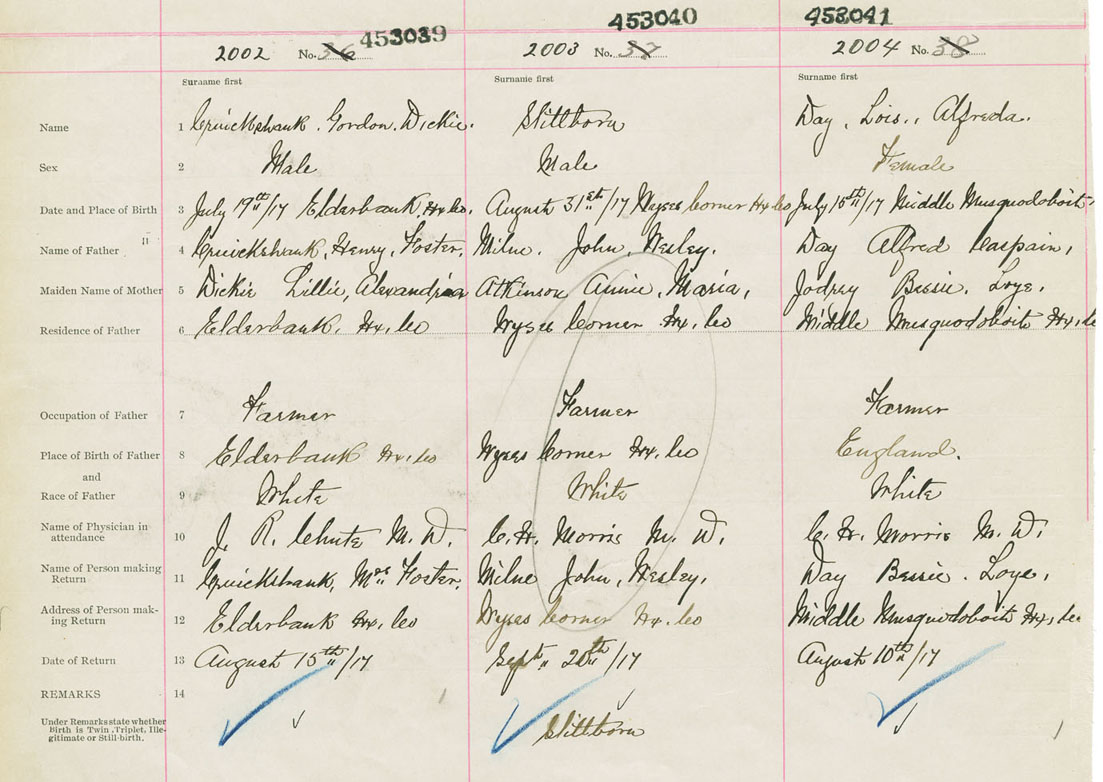 453039 453040 453041
2002 No. 36 2003 No. 37 2004 No. 38
Surname first Surname first Surname first
Name 1 Cruickshank, Gordon, Dickie. Stillborn Day, Lois, Alfreda.
Sex 2 Male Male Female
Date and Place of Birth 3 July 19th/17 Elderbank, Hx. Co. August 31st/17 Wyses Corner Hx Co July 15th/17 Middle Musquodoboit
Name of Father 4 Cruickshank, Henry, Foster, Milne, John, Wesley. Day Alfred Caspain,
Maiden Name of Mother 5 Dickie Lillie, Alexandria Atkinson Annie, Maria, Jodrey Bessie, Loye,
Residence of Father 6 Elderbank, Hx, Co Wyses Corner Hx, Co Middle Musquodoboit Hx, Co
Occupation of Father 7 Farmer Farmer Farmer
Place of Birth of Father 8 Elderbank Hx, Co Wyses Corner Hx, Co England.
and
Race of Father 9 White White White
Name of Physician in
attendance 10 J. R. Chute M. D. C. H. Morris M. D. C. H. Morris M. D.
Name of Person making
Return 11 Cruickshank, Mrs. Foster, Milne John, Wesley, Day Bessie. Loye,
Address of Person mak-
ing Return 12 Elderbank Hx, Co Wyses Corner Hx, Co Middle Musquodoboit Hx, Co
Date of Return 13 August 15th/17 Sept 20th/17 August 10th/17
REMARKS 14
Under Remarks state whether
Birth is Twin, Triplet, Ille-
gitimate or Still-birth. Stillborn